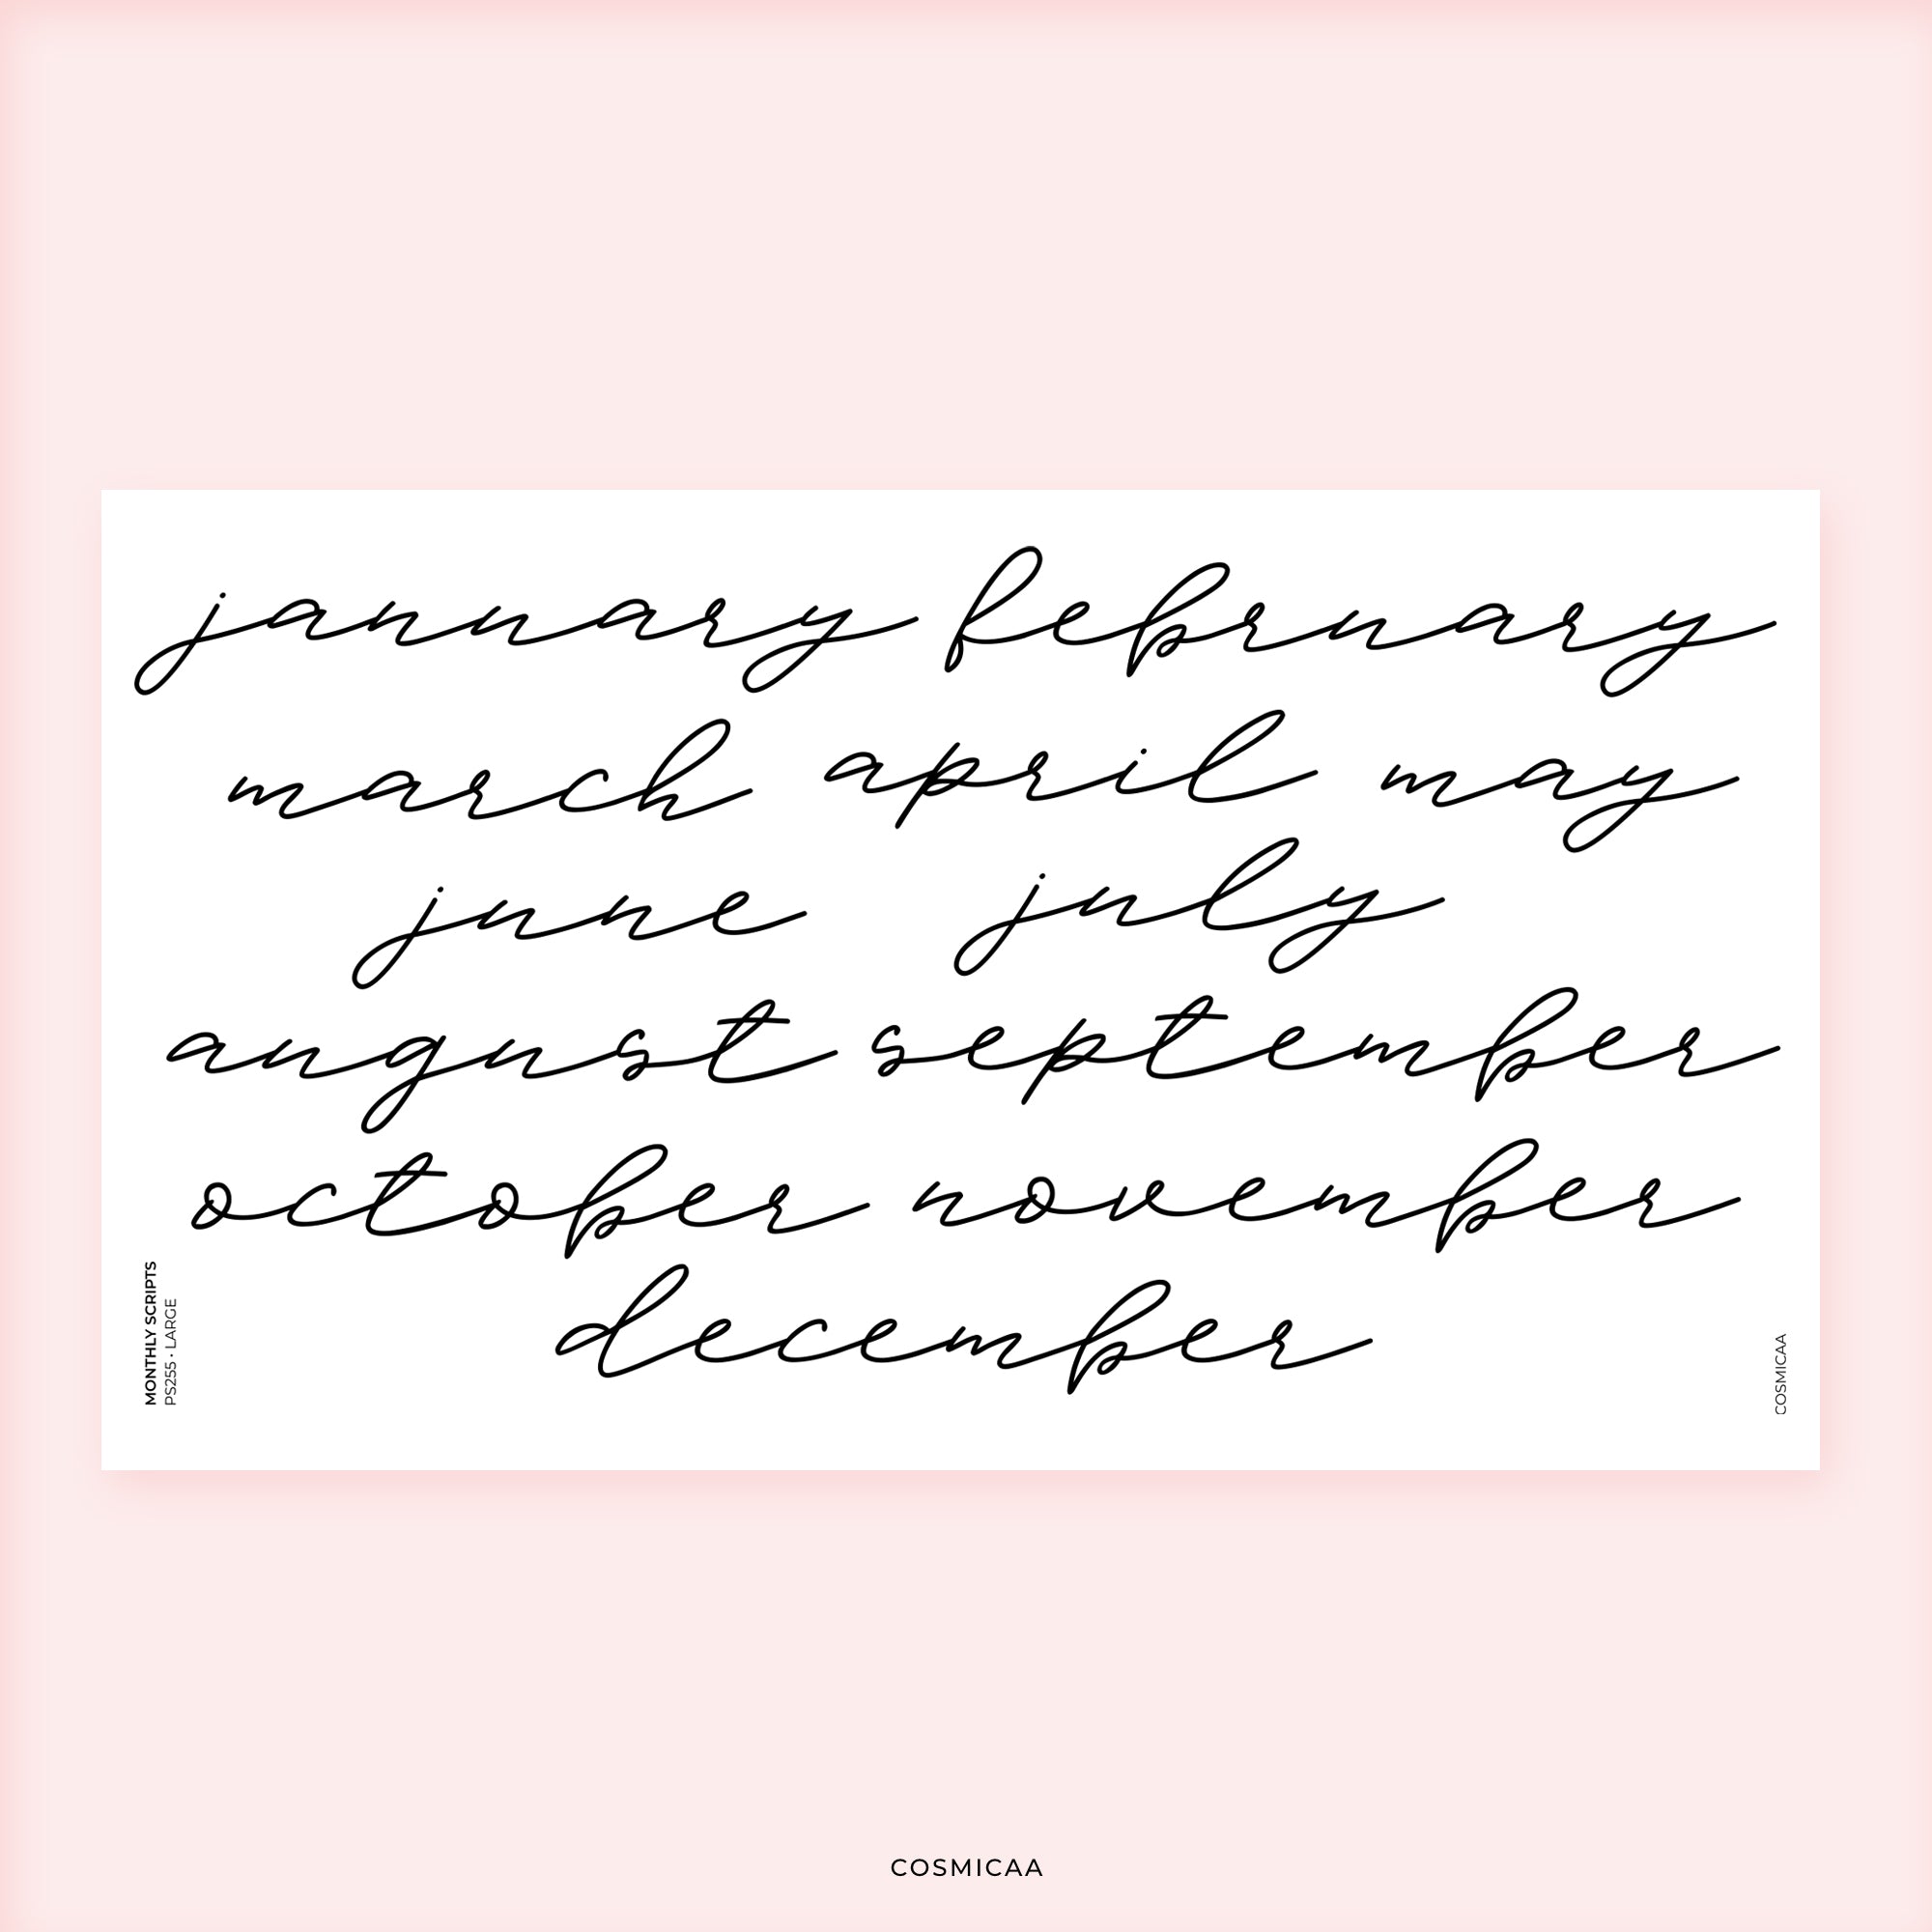 january february
march april may
june july
august september
october november
december
MONTHLY SCRIPTS
PS255 · LARGE
COSMICAA
COSMICAA